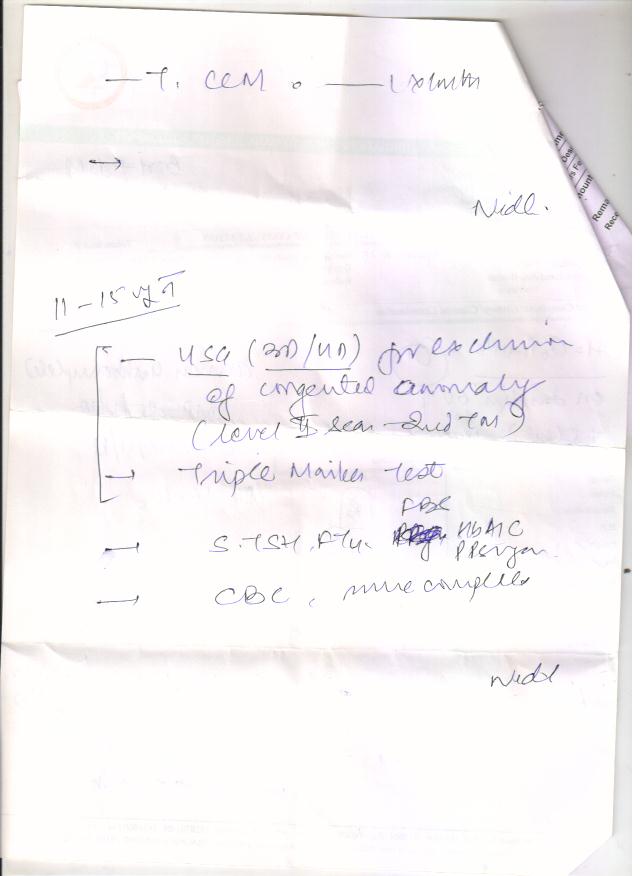 — T. CCM o —— 1 x1mth
→
Nidh.
11 – 15 जून
— USG (3D/4D) for exclusion
of congenital anomaly
(level II scan - 2nd TM)
→ Triple Marker Test
FBS
→ S. TSH, FT4. HbA1C
PPSugar.
→ CBC, urine complete
Nidh